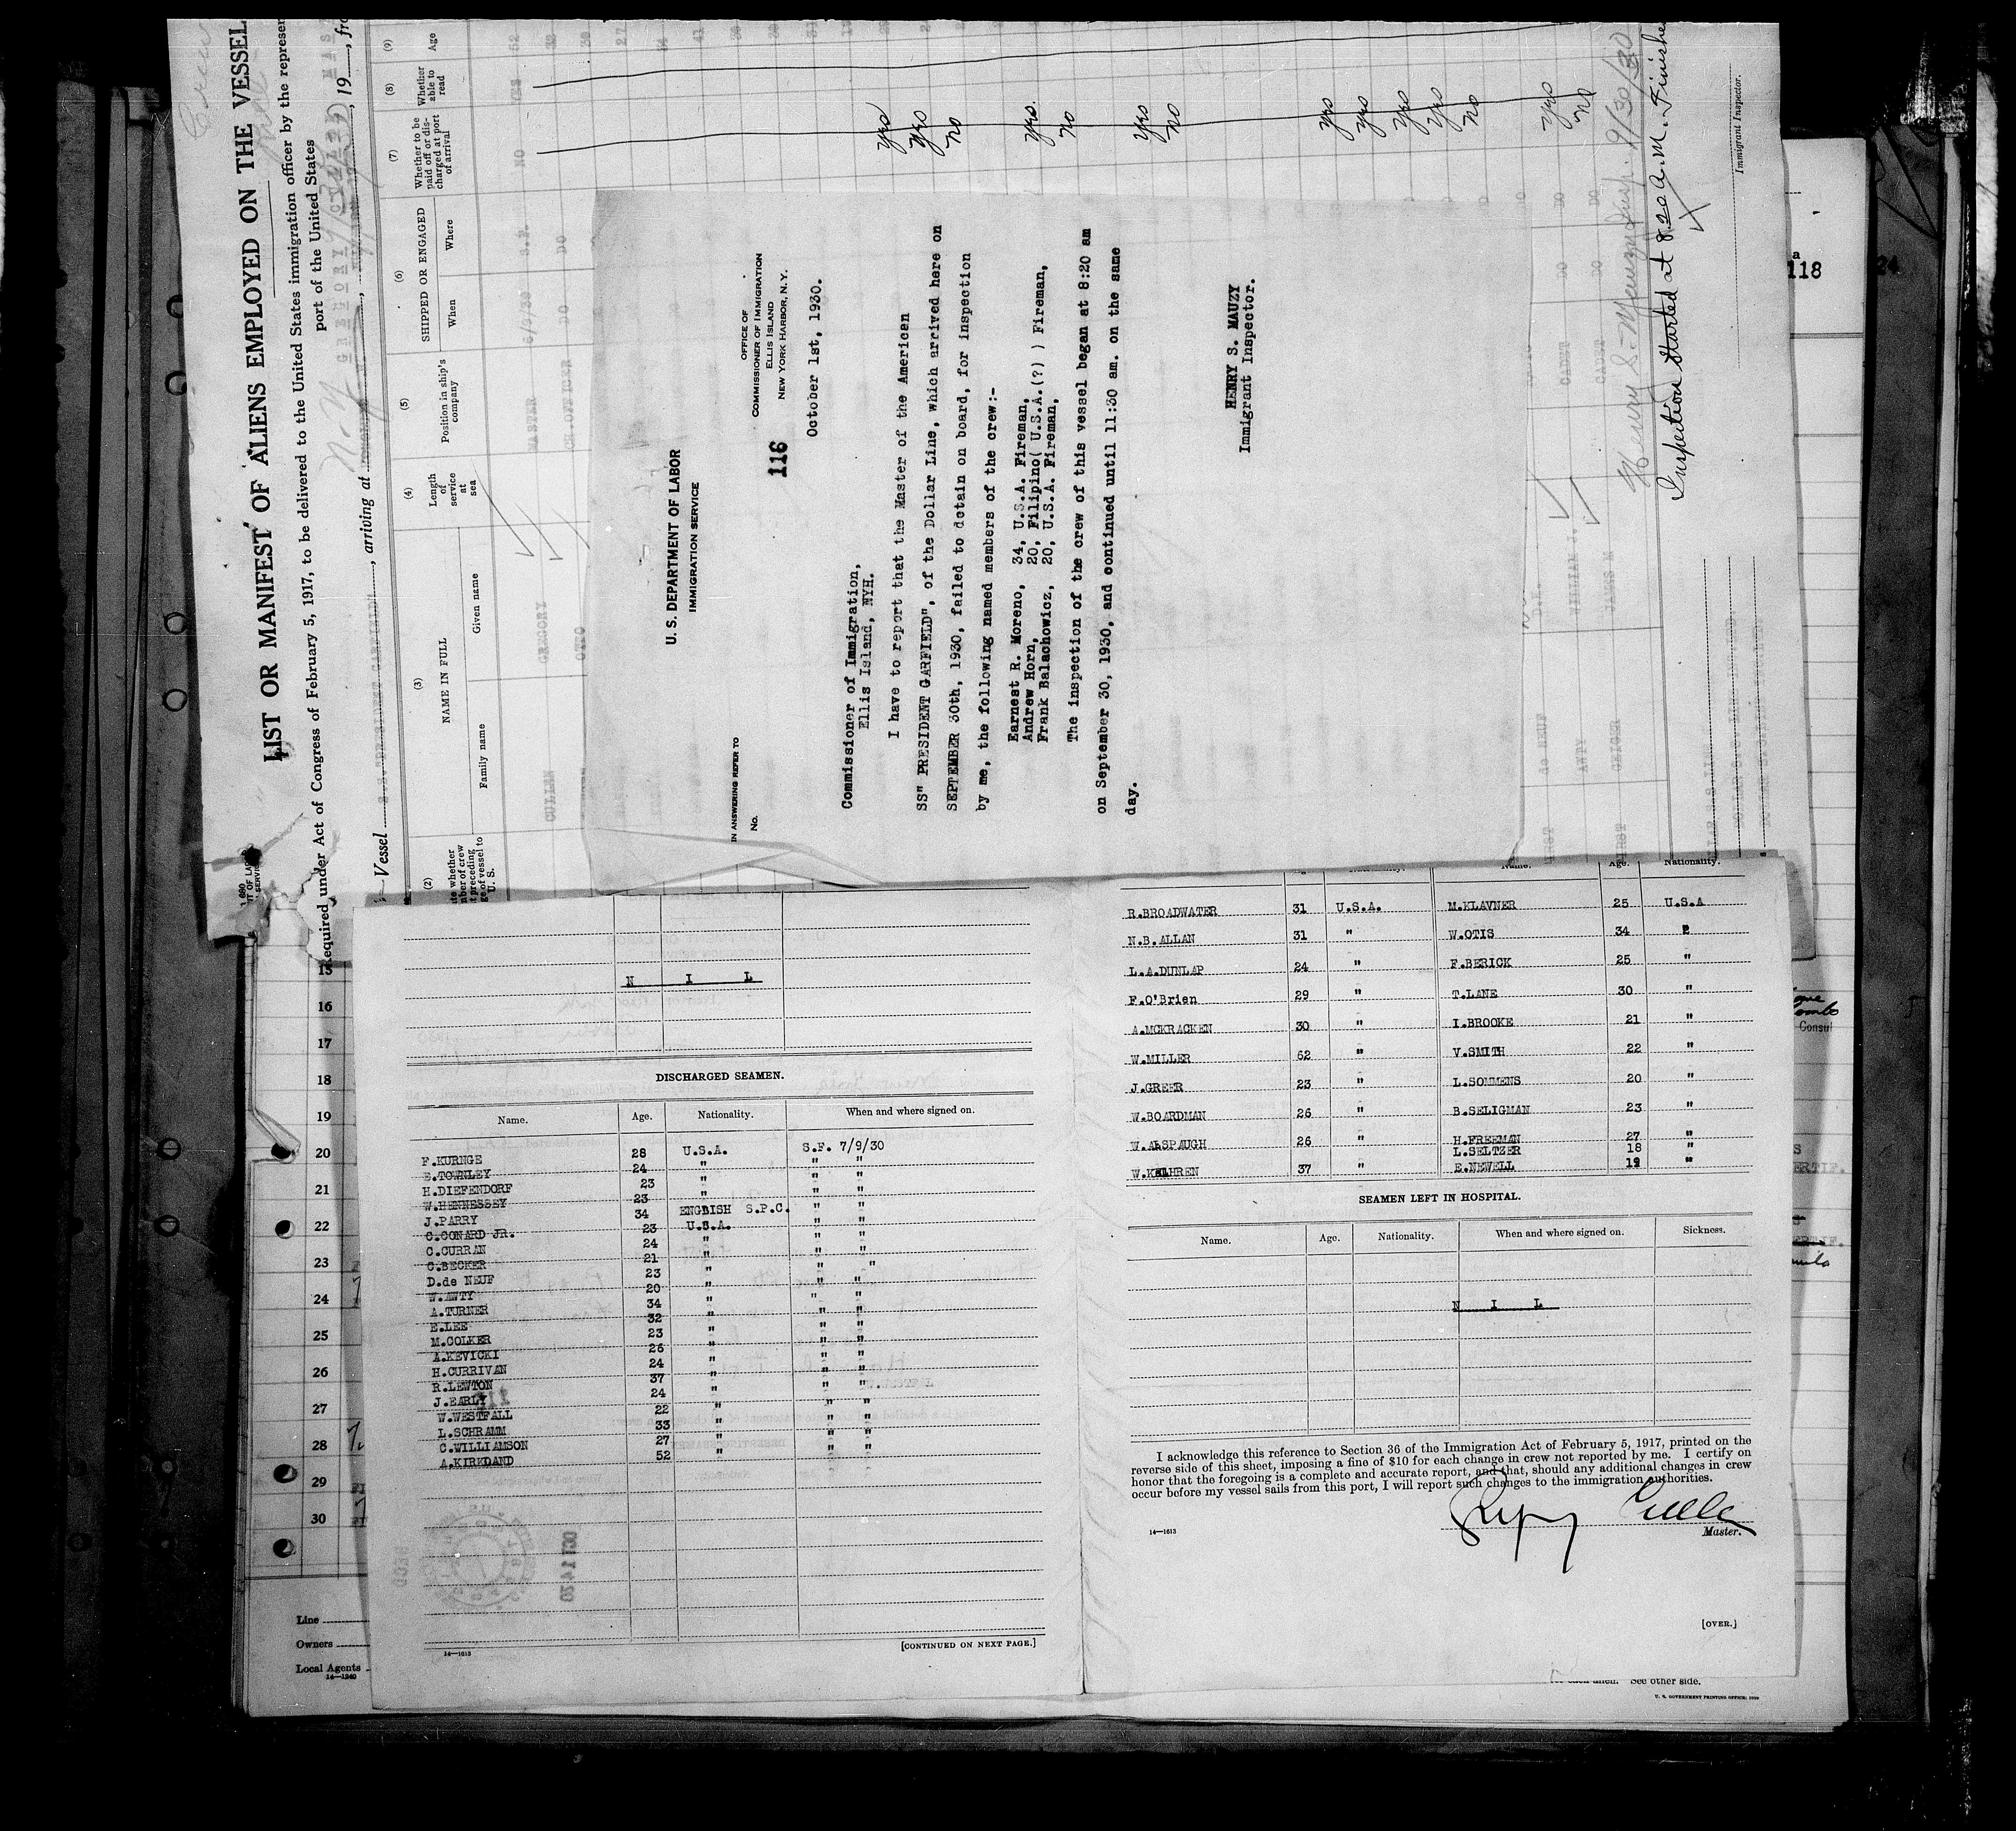 LIST OR MANIFEST OF ALIENS EMPLOYED ON THE VESSEL
Required under Act of Congress of February 5, 1917, to be delivered to the United States immigration officer by the represen
port of the United States
Vessel
, arriving at
, 19
, fro
(2)
(3)
NAME IN FULL
Family name
Given name
(4)
Length of service at sea
(5)
Position in ship's company
(6)
SHIPPED OR ENGAGED
When
Where
(7)
Whether to be paid off or discharged at port of arrival
(8)
Whether able to read
(9)
Age
CULLEN GREGORY MASTER 6/9/30 S.F. NO YES 52
OTTO CH.OFFICER DO DO
yes
yes
no
yes
no
yes
no
yes
yes
yes
yes
no
yes
no
de NEUF
AWTY WILLIAM J. CADET DO DO
GEIGER JAMES CADET DO DO
Henry S. Mauzy Insp. 9/30/30
Inspection started at 8.20 a.m. Finished
Immigrant Inspector.
U. S. DEPARTMENT OF LABOR
IMMIGRATION SERVICE
OFFICE OF
COMMISSIONER OF IMMIGRATION
ELLIS ISLAND
NEW YORK HARBOR, N. Y.
IN ANSWERING REFER TO
No.
116
October 1st, 1930.
Commissioner of Immigration,
Ellis Island, NYH.
I have to report that the Master of the American
SS" PRESIDENT GARFIELD", of the Dollar Line, which arrived here on
SEPTEMBER 30th, 1930, failed to detain on board, for inspection
by me, the following named members of the crew:-
Earnest R. Moreno, 34, U.S.A. Fireman,
Andrew Horn, 20, Filipino( U.S.A.(?) ) Fireman,
Frank Balachowicz, 20, U.S.A. Fireman,
The inspection of the crew of this vessel began at 8:20 am
on September 30, 1930, and continued until 11:30 am. on the same
day.
HENRY S. MAUZY
Immigrant Inspector.
118
24
15
16
17
18
19
20
21
22
23
24
25
26
27
28
29
30
Line
Owners
Local Agents
14—1240
N I L
DISCHARGED SEAMEN.
Name. Age. Nationality. When and where signed on.
F.KURNGE 28 U.S.A. S.F. 7/9/30
E.TOWNLEY 24 " " "
H.DIEFENDORF 23 " " "
W.HENNESSEY 23 " " "
J.PARRY 34 ENGLISH S.P.C. " "
C.CONARD JR. 23 U.S.A. " "
C.CURRAN 24 " " "
C.BECKER 21 " " "
D.de NEUF 23 " " "
W.AWTY 20 " " "
A.TURNER 34 " " "
E.LEE 32 " " "
M.COLKER 23 " " "
A.KEVICKI 26 " " "
H.CURRIVAN 24 " " "
R.LEWTON 37 " " "
J.EARLY 24 " " "
W.WESTFALL 22 " " "
L.SCHRAMM 33 " " "
C.WILLIAMSON 27 " " "
A.KIRKLAND 52 " " "
14—1613
[CONTINUED ON NEXT PAGE.]
Name. Age. Nationality.
R.BROADWATER 31 U.S.A. M.KLAVNER 25 U.S.A
N.B.ALLAN 31 " W.OTIS 34
L.A.DUNLAP 24 " F.BERICK 25 "
F.O'Brien 29 " T.LANE 30 "
A.MCKRACKEN 30 " I.BROOKE 21 "
W.MILLER 62 " V.SMITH 22 "
J.GREER 23 " L.SOMMENS 20 "
W.BOARDMAN 26 " B.SELIGMAN 23 "
W.ALSPAUGH 26 " H.FREEMAN 27 "
L.SELTZER 18 "
37 " E.NEWELL "
SEAMEN LEFT IN HOSPITAL.
Name. Age. Nationality. When and where signed on. Sickness.
N I L
I acknowledge this reference to Section 36 of the Immigration Act of February 5, 1917, printed on the
reverse side of this sheet, imposing a fine of $10 for each change in crew not reported by me. I certify on
honor that the foregoing is a complete and accurate report, and that, should any additional changes in crew
occur before my vessel sails from this port, I will report such changes to the immigration authorities.
Master.
14—1613
[OVER.]
See other side.
U. S. GOVERNMENT PRINTING OFFICE:
Consul